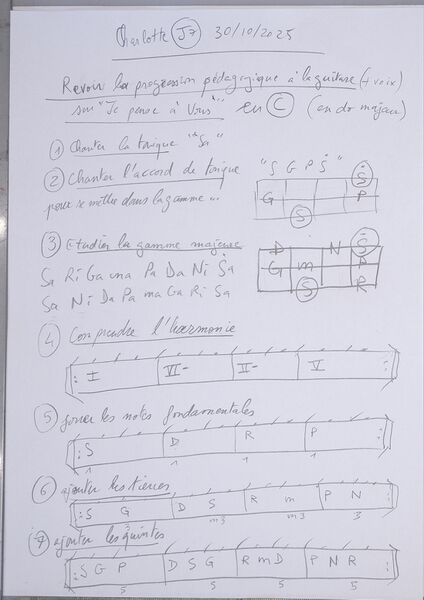 Charlotte J7 30/10/2025
Revoir la progression pédagogique à la guitare (+ voix)
sur "Je pense à Vous" en C (en do majeur)
① Chanter la tonique "Sa"
② Chanter l'accord de tonique "S G P Ṡ"
pour se mettre dans la gamme...
Ṡ
G P
S
③ Etudier la gamme majeure
D N Ṡ
G m P
S R
Sa Ri Ga ma Pa Da Ni Ṡa
Sa Ni Da Pa ma Ga Ri Sa
④ Comprendre l'harmonie
I VI- II- V
⑤ jouer les notes fondamentales
S D R P
1 1 1 1
⑥ ajouter les tierces
S G D S R m P N
m3 m3 3
⑦ ajouter les quintes
S G P D S G R m D P N R
5 5 5 5